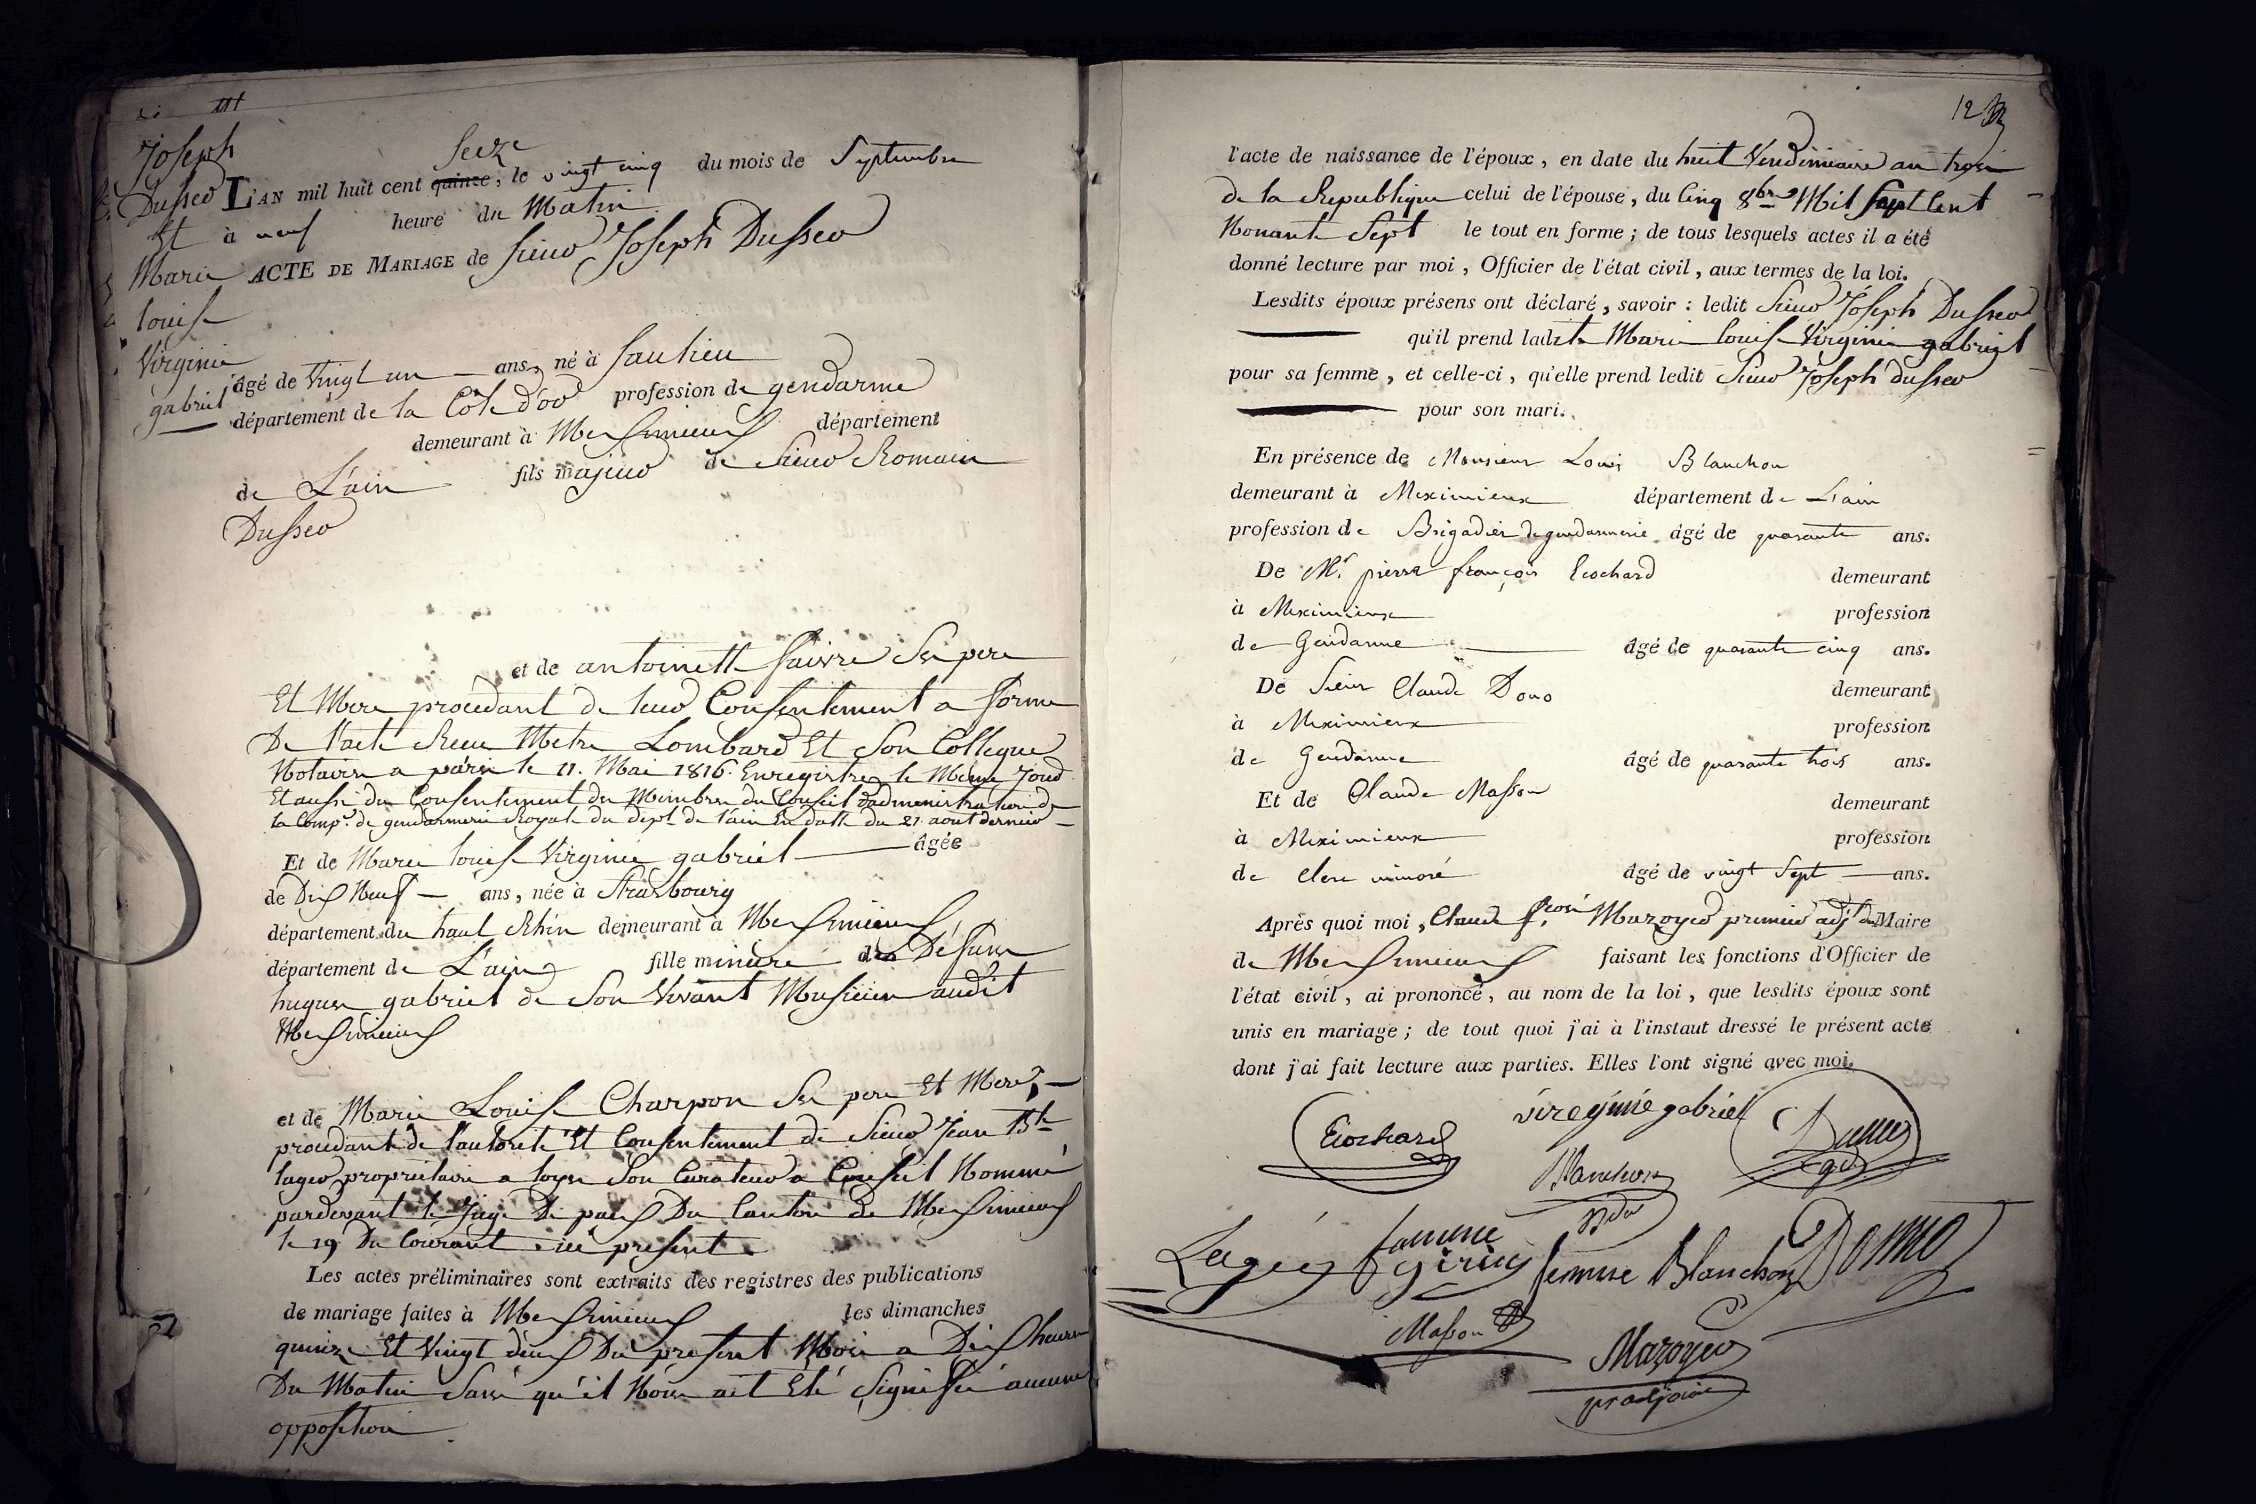 Joseph
Dusser
Et
Marie
louise
Virginie
gabriel
L'AN mil huit cent quinze, Seize le vingt cinq du mois de Septembre
à neuf heure du Matin
ACTE DE MARIAGE de Sieur Joseph Dusser
âgé de Vingt un ans, né à Saulieu
département de la Côte d'or profession de gendarme
demeurant à Meximieux département
de L'ain fils majeur de Sieur Romain
Dusser
et de antoinette faivre Ses pere
Et Mere procedant de leur Consentement a forme
De l'acte Recu Metre Lombard Et Son Collegue
Notaires a paris le 11. Mai 1816. Enregistré le Même Jour
Et aussi du Consentement des Membres du Conseil d'administration de
la Comp.e de gendarmerie Royale du dept. de l'ain En datte du 21 aout dernier
Et de Marie louise Virginie gabriel âgée
de Dix Neuf ans, née à Strasbourg
département du haut Rhin demeurant à Meximieux
département de L'ain fille mineure de Défunt
hugues gabriel de Son Vivant Musicien audit
Meximieux
et de Marie Louise Charpon Ses pere Et Mere,
procedant de l'autorité Et Consentement de Sieur Jean Bte
lager propriétaire a loyes Son Curateur a Conseil Nommé
pardevant le Juge De paix Du Canton de Meximieux
le 19 Du Courant ici present
Les actes préliminaires sont extraits des registres des publications
de mariage faites à Meximieux les dimanches
quinze Et Vingt deux Du present Mois a Dix heures
Du Matin Sans qu'il Nous ait Eté Signifié aucune
opposition
12
l'acte de naissance de l'époux, en date du huit Vendémiaire an trois
de la Republique celui de l'épouse, du Cinq 8bre Mil Sept Cent
Nonante Sept le tout en forme; de tous lesquels actes il a été
donné lecture par moi, Officier de l'état civil, aux termes de la loi.
Lesdits époux présens ont déclaré, savoir: ledit Sieur Joseph Dusser
qu'il prend ladite Marie louise Virginie gabriel
pour sa femme, et celle-ci, qu'elle prend ledit Sieur Joseph dusser
pour son mari.
En présence de Monsieur Louis Blanchon
demeurant à Meximieux département de L'ain
profession de Brigadier de gendarmerie âgé de quarante ans.
De Mr. pierre françois Ecochard demeurant
à Meximieux profession
de Gendarme âgé de quarante cinq ans.
De Sieur Claude Dono demeurant
à Meximieux profession
de Gendarme âgé de quarante trois ans.
Et de Claude Masson demeurant
à Meximieux profession
de clerc minoré âgé de vingt Sept ans.
Après quoi moi, Claude f.cois Mazoyer premier adjt du Maire
de Meximieux faisant les fonctions d'Officier de
l'état civil, ai prononcé, au nom de la loi, que lesdits époux sont
unis en mariage; de tout quoi j'ai à l'instant dressé le présent acte
dont j'ai fait lecture aux parties. Elles l'ont signé avec moi.
viregínie gabriel
Ecochard
Dusser
Blanchon
Lager
femme
femme Blanchon
Donno
Masson
Mazoyer
pr adjoint